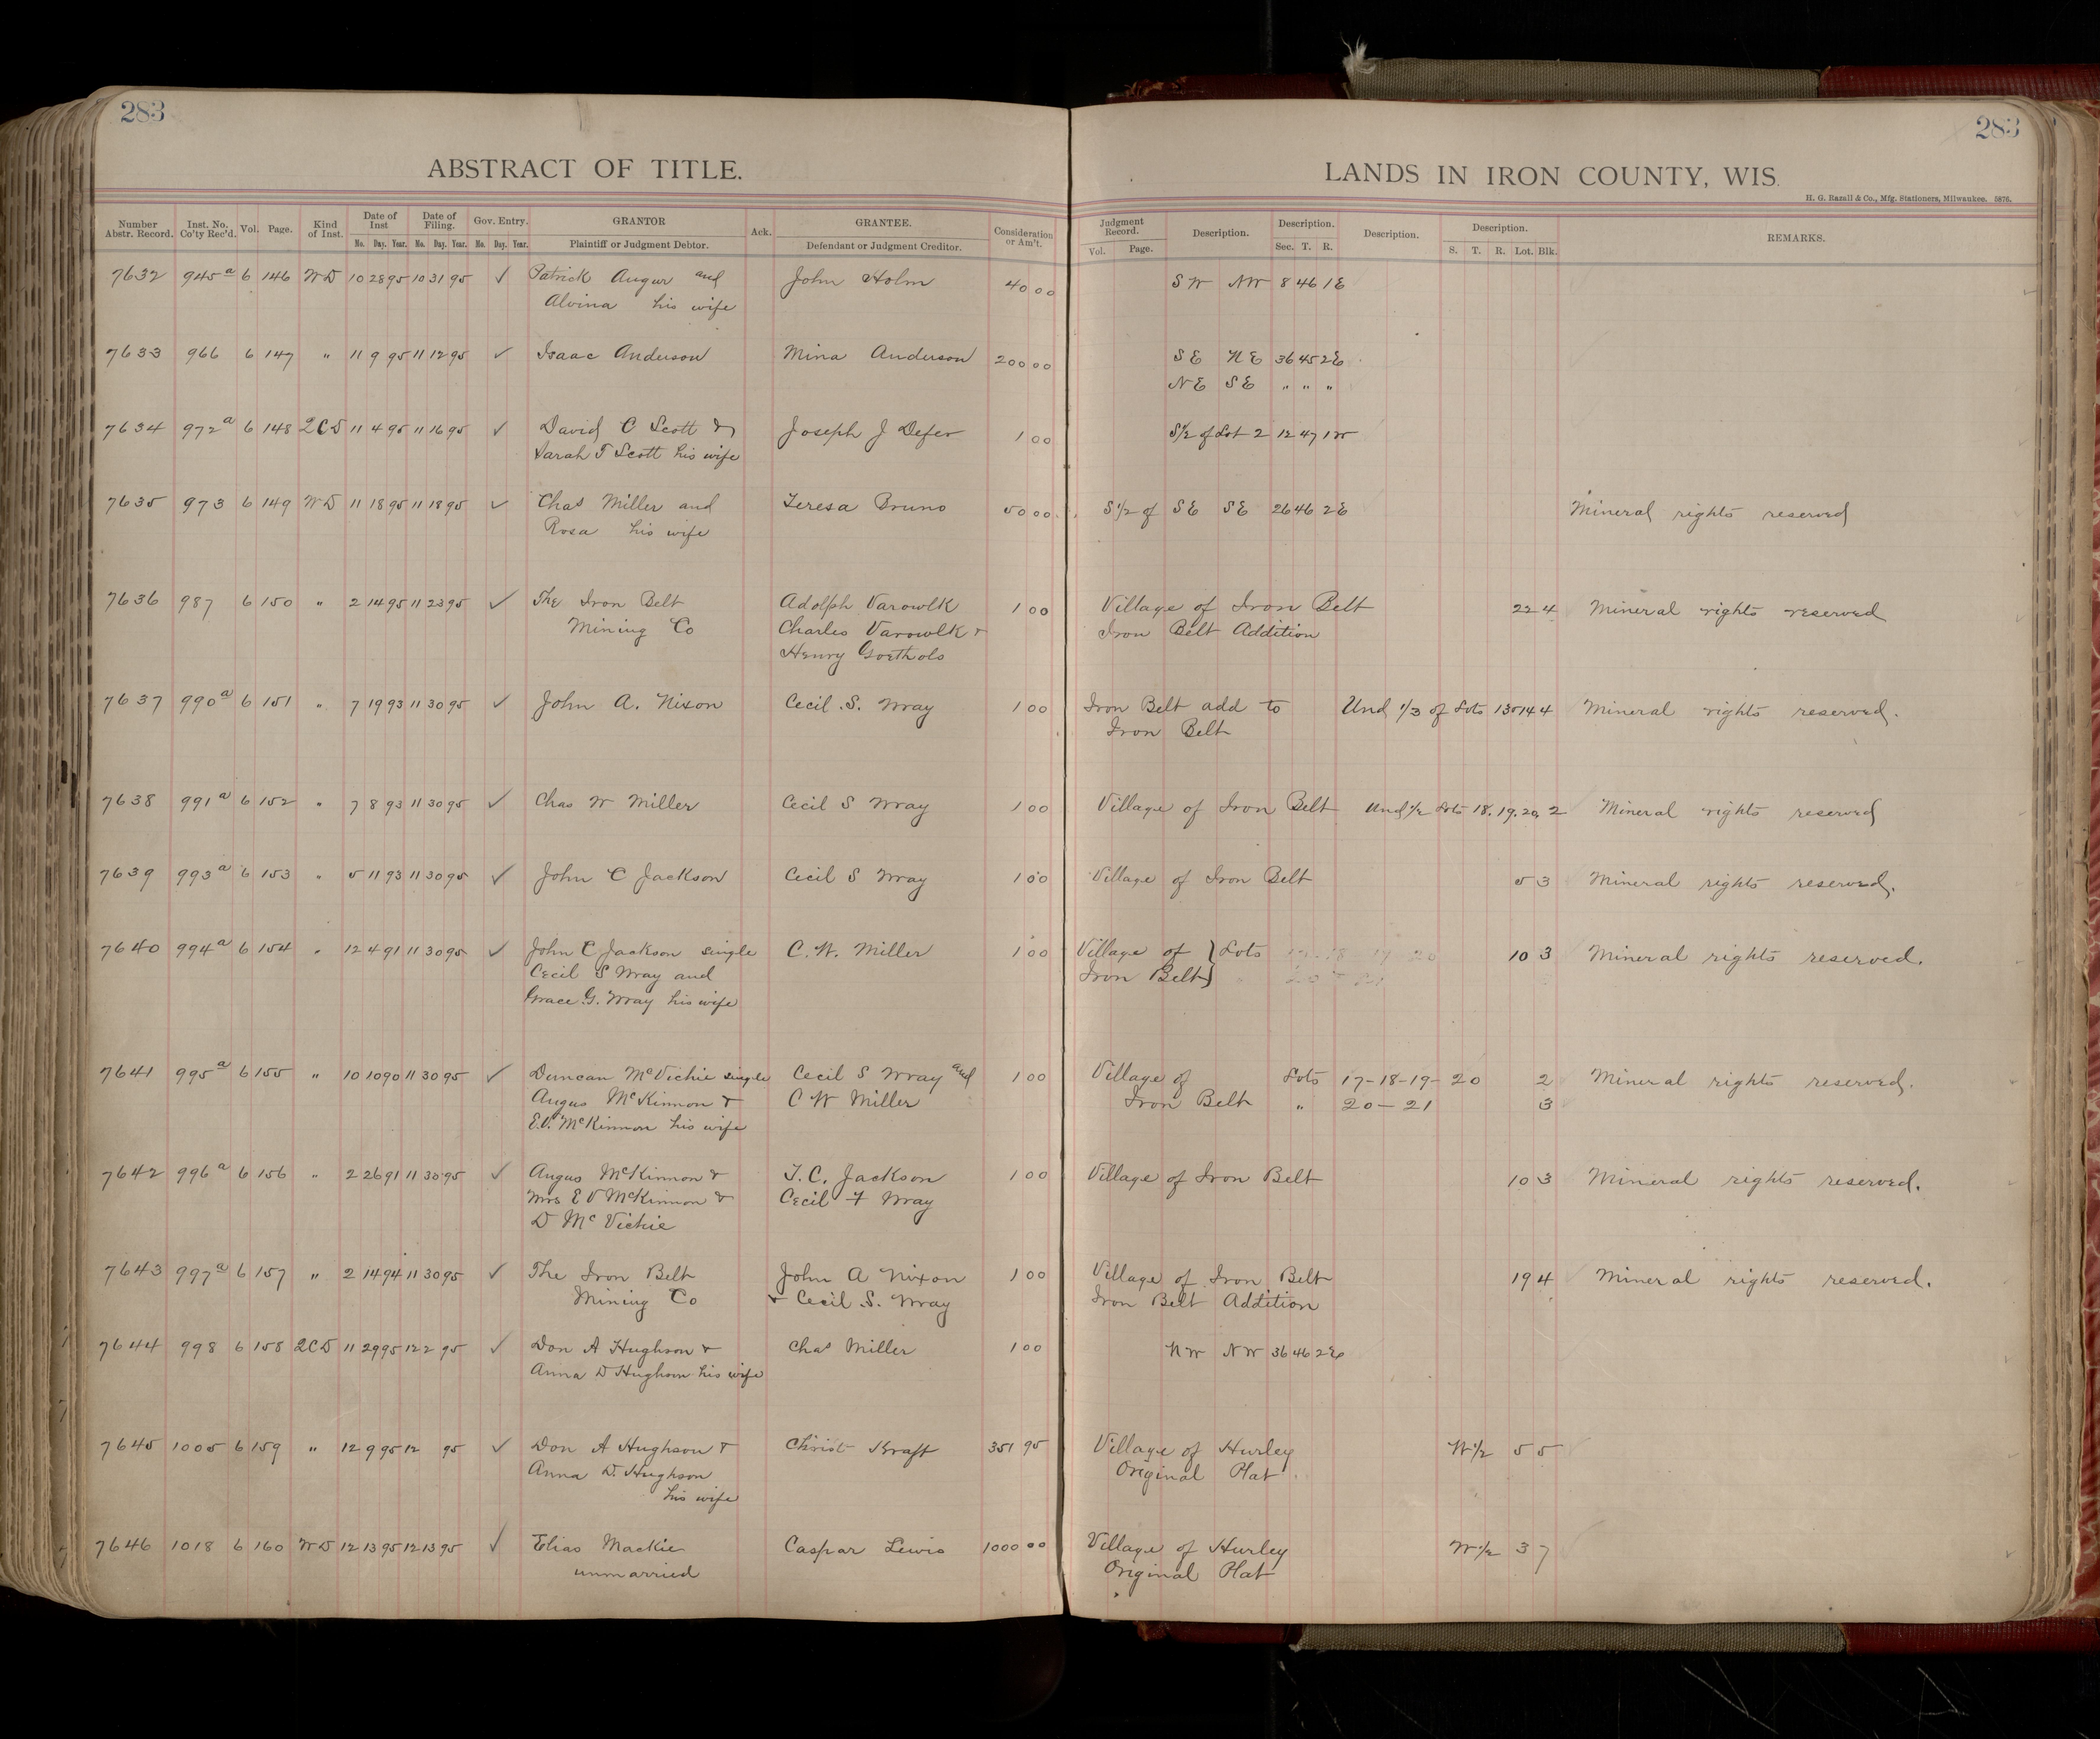 283
283
ABSTRACT OF TITLE.
LANDS IN IRON COUNTY, WIS.
H. G. Razall & Co., Mfg. Stationers, Milwaukee. 5876.
Number Abstr. Record. Inst. No. Co'ty Rec'd. Vol. Page. Kind of Inst. Date of Inst Date of Filing. Gov. Entry. GRANTOR Ack. GRANTEE. Consideration or Am't. Judgment Record. Description. Description. Description. Description. REMARKS.
No. Day. Year. No. Day. Year. No. Day. Year. Plaintiff or Judgment Debtor. Defendant or Judgment Creditor. Vol. Page. Sec. T. R. S. T. R. Lot. Blk.
7632 945a 6 146 WD 10 28 95 10 31 95 ✓ Patrick Augur and John Holm 40 00 SW NW 8 46 1E
Alvina his wife
7633 966 6 147 " 11 9 95 11 12 95 ✓ Isaac Anderson Mina Anderson 200 00 SE NE 36 45 2E
NE SE " " "
7634 972a 6 148 2CD 11 4 95 11 16 95 ✓ David C Scott & Joseph J Defer 1 00 S1/2 of Lot 2 12 47 1W
Sarah T Scott his wife
7635 973 6 149 WD 11 18 95 11 18 95 ✓ Chas Miller and Teresa Bruno 50 00 S1/2 of SE SE 26 46 2E Mineral rights reserved
Rosa his wife
7636 987 6 150 " 2 14 95 11 23 95 ✓ The Iron Belt Adolph Varowlk 1 00 Village of Iron Belt 22 4 Mineral rights reserved
Mining Co Charles Varowlk & Iron Belt Addition
Henry Goethols
7637 990a 6 151 " 7 19 93 11 30 95 ✓ John A. Nixon Cecil S. Wray 1 00 Iron Belt add to Und 1/3 of Lots 13 14 4 Mineral rights reserved.
Iron Belt
7638 991a 6 152 " 7 8 93 11 30 95 ✓ Chas W Miller Cecil S Wray 1 00 Village of Iron Belt Und 1/2 Lots 18. 19. 20. 2 Mineral rights reserved
7639 993a 6 153 " 5 11 93 11 30 95 ✓ John C Jackson Cecil S Wray 1 00 Village of Iron Belt 5 3 Mineral rights reserved.
7640 994a 6 154 " 12 4 91 11 30 95 ✓ John C Jackson single C. W. Miller 1 00 Village of } Lots 10 3 Mineral rights reserved.
Cecil S Wray and Iron Belt }
Grace G. Wray his wife
7641 995a 6 155 " 10 10 90 11 30 95 ✓ Duncan McVichie single Cecil S Wray and 1 00 Village of Lots 17-18-19-20 2 Mineral rights reserved.
Angus McKinnon & C W Miller Iron Belt " 20-21 3
E.V. McKinnon his wife
7642 996a 6 156 " 2 26 91 11 30 95 ✓ Angus McKinnon & J. C. Jackson 1 00 Village of Iron Belt 10 3 Mineral rights reserved.
Mrs E V McKinnon & Cecil F Wray
D McVichie
7643 997a 6 157 " 2 14 94 11 30 95 ✓ The Iron Belt John A Nixon 1 00 Village of Iron Belt 19 4 Mineral rights reserved.
Mining Co & Cecil S. Wray Iron Belt Addition
7644 998 6 158 2CD 11 29 95 12 2 95 ✓ Don A Hughson & Chas Miller 1 00 NW NW 36 46 2E
Anna D Hughson his wife
7645 1005 6 159 " 12 9 95 12 95 ✓ Don A Hughson & Christ Kraft 351 95 Village of Hurley W1/2 5 5
Anna D. Hughson Original Plat
his wife
7646 1018 6 160 WD 12 13 95 12 13 95 ✓ Elias Mackie Caspar Lewis 1000 00 Village of Hurley W1/2 3 7
unmarried Original Plat